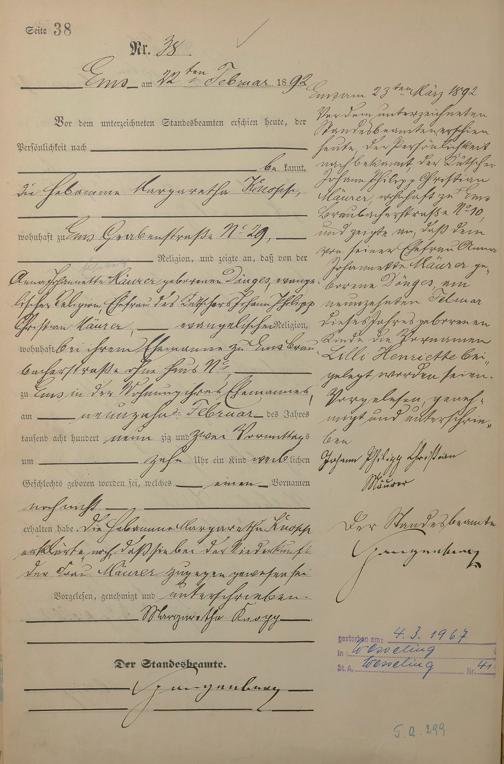 Seite 38
Nr. 38
Ems am 22ten Februar 1892
Vor dem unterzeichneten Standesbeamten erschien heute, der
Persönlichkeit nach
bekannt,
die Hebamme Margaretha Knopp,
wohnhaft zu Ems Grabenstraße No 29,
Religion, und zeigte an, daß von der
Anna Johannette Mäurer geborenen Dönges, evange-
lischer Religion, Ehefrau des Kutschers Johann Philipp
Christian Mäurer, evangelischer Religion,
wohnhaft bei ihrem Ehemanne zu Ems Brau-
bacherstraße ohne Haus No
zu Ems in der Wohnung ihres Ehemannes,
am neunzehnten Februar des Jahres
tausend acht hundert neunzig und zwei Vormittags
um zehn Uhr ein Kind weiblichen
Geschlechts geboren worden sei, welches einen Vornamen
noch nicht
erhalten habe. Die Hebamme Margaretha Knopp
erklärte noch, daß sie bei der Niederkunft
der Frau Mäurer zugegen gewesen sei
Vorgelesen, genehmigt und unterschrieben.
Margaretha Knopp
Der Standesbeamte.
Ems am 23ten März 1892
Vor dem unterzeichneten
Standesbeamten erschien
heute, der Persönlichkeit
nach bekannt der Kutscher
Johann Philipp Christian
Mäurer, wohnhaft zu Ems
Braubacherstraße No 10,
und zeigte an, daß dem
von seiner Ehefrau Anna
Johannette Mäurer ge-
borene Dönges, am
neunzehnten Februar
dieses Jahres geborenen
Kinde die Vornamen
Lilli Henriette bei-
gelegt worden seien.
Vorgelesen, geneh-
migt und unterschrie-
ben
Johann Philipp Christian
Mäurer
Der Standesbeamte
gestorben am: 4.3.1967
in Wesseling
St. A. Wesseling Nr. 41